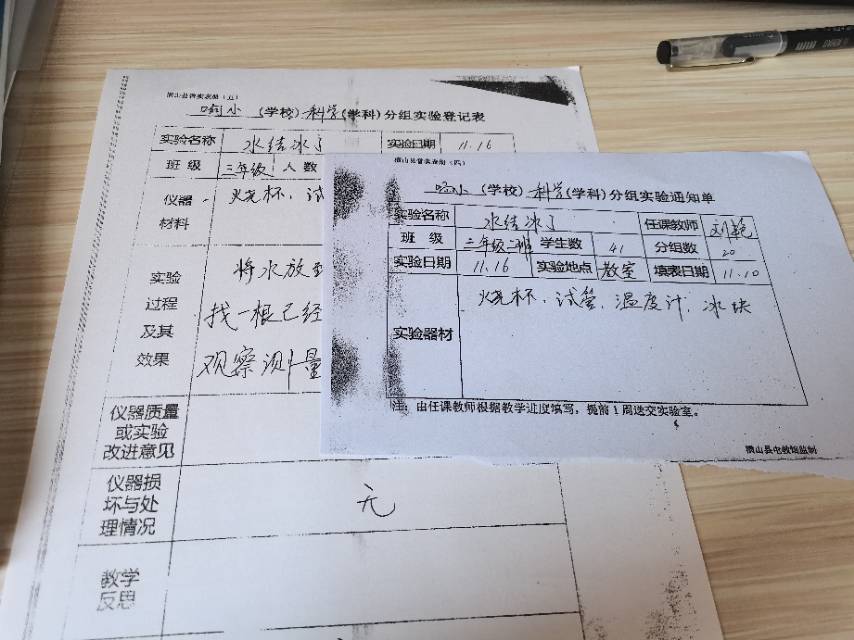 横山县普实表册（五）
响小（学校）科学（学科）分组实验登记表
实验名称 水结冰了 实验日期 11.16
班 级 三年级 人 数
仪器 烧杯、试
材料
实验 将水放
过程 找一根已经
及其
效果 观察测量
仪器质量
或实验
改进意见
仪器损
坏与处 无
理情况
教学
反思
横山县普实表册（四）
响小（学校）科学（学科）分组实验通知单
实验名称 水结冰了 任课教师 刘艳
班 级 三年级二班 学生数 41 分组数 20
实验日期 11.16 实验地点 教室 填表日期 11.10
实验器材 烧杯、试管、温度计、冰块
注：由任课教师根据教学进度填写，提前1周送交实验室。
横山县电教馆监制